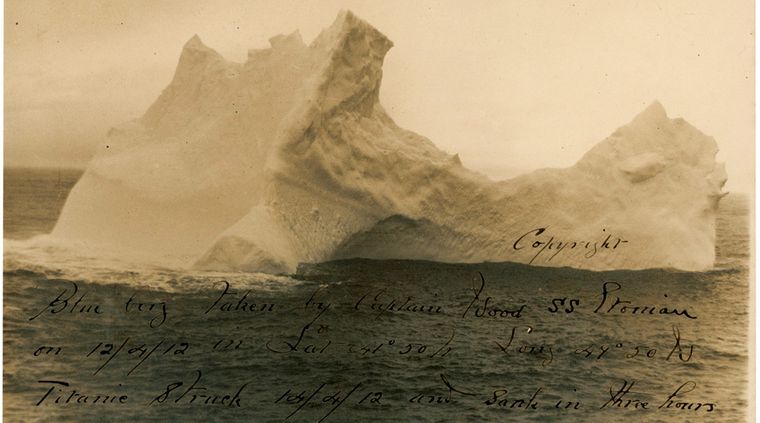 Copyright
Blue berg taken by Captain Wood SS Etonian
on 12/4/12 in Lat 41° 50 N Long 49° 50 W
Titanic Struck 14/4/12 and sank in three hours